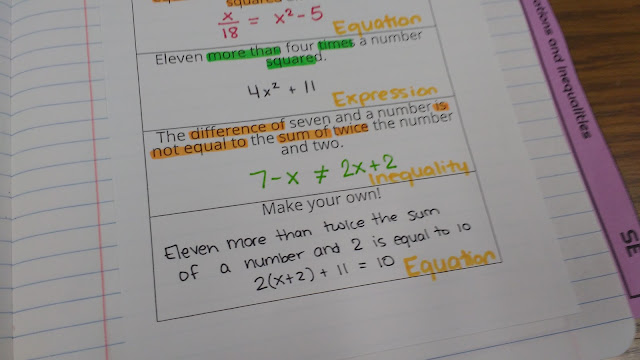 squared
x/18 = x² - 5
Equation
Eleven more than four times a number
squared.
4x² + 11
Expression
The difference of seven and a number is
not equal to the sum of twice the number
and two.
7-x ≠ 2x+2
Inequality
Make your own!
Eleven more than twice the sum
of a number and 2 is equal to 10
2(x+2) + 11 = 10
Equation
and Inequalities
SE